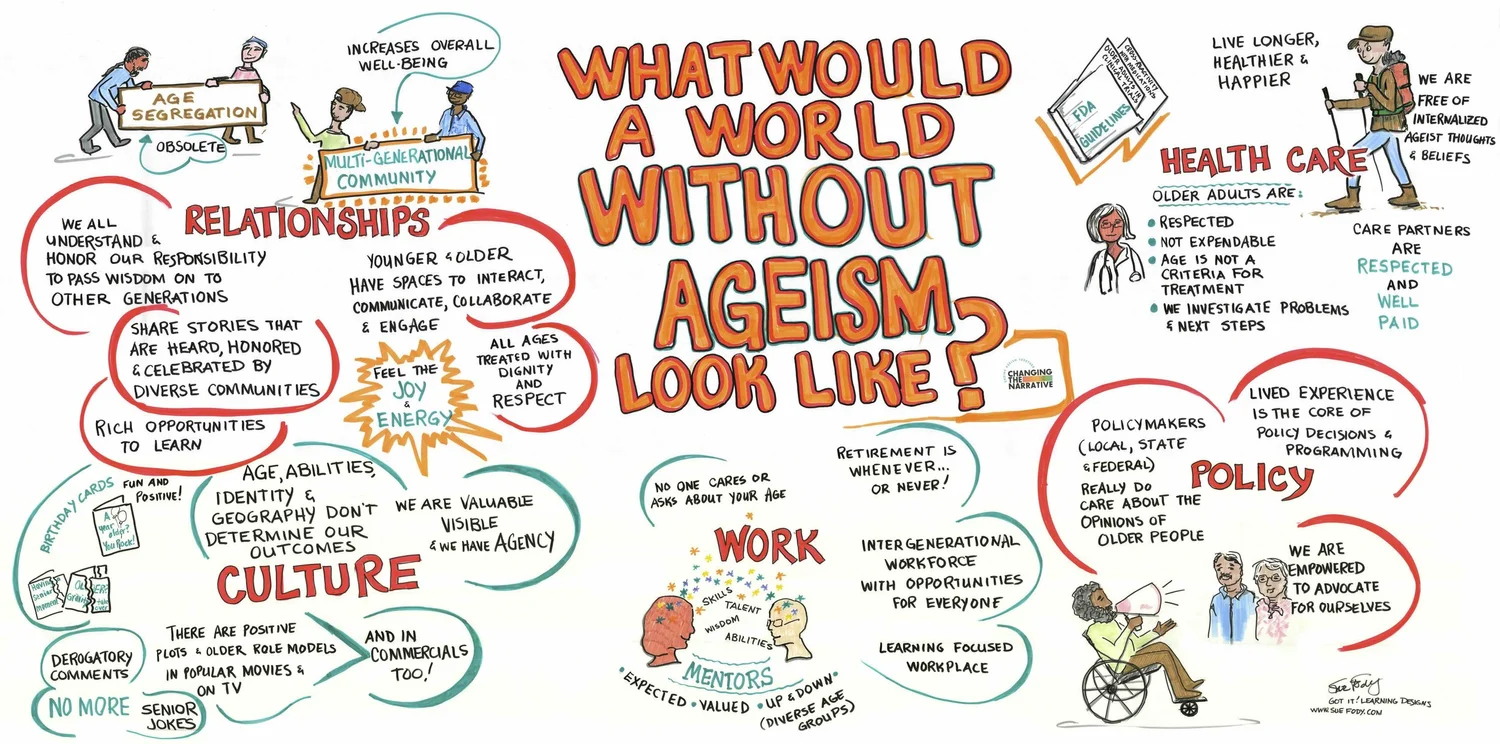 WHAT WOULD
A WORLD
WITHOUT
AGEISM
LOOK LIKE?
CHANGING
THE
NARRATIVE
AGE
SEGREGATION
OBSOLETE
INCREASES OVERALL
WELL-BEING
MULTI-GENERATIONAL
COMMUNITY
RELATIONSHIPS
WE ALL
UNDERSTAND &
HONOR OUR RESPONSIBILITY
TO PASS WISDOM ON TO
OTHER GENERATIONS
YOUNGER & OLDER
HAVE SPACES TO INTERACT,
COMMUNICATE, COLLABORATE
& ENGAGE
SHARE STORIES THAT
ARE HEARD, HONORED
& CELEBRATED BY
DIVERSE COMMUNITIES
FEEL THE
JOY
&
ENERGY
ALL AGES
TREATED WITH
DIGNITY
AND
RESPECT
RICH OPPORTUNITIES
TO LEARN
BIRTHDAY CARDS
FUN AND
POSITIVE!
A
year
older?
You Rock!
Having
Senior
Moment
AGE, ABILITIES,
IDENTITY &
GEOGRAPHY DON'T
DETERMINE OUR
OUTCOMES
WE ARE VALUABLE
VISIBLE
& WE HAVE AGENCY
CULTURE
DEROGATORY
COMMENTS
NO MORE
SENIOR
JOKES
THERE ARE POSITIVE
PLOTS & OLDER ROLE MODELS
IN POPULAR MOVIES &
ON TV
AND IN
COMMERCIALS
TOO!
NO ONE CARES OR
ASKS ABOUT YOUR AGE
RETIREMENT IS
WHENEVER...
OR NEVER!
WORK
SKILLS
TALENT
WISDOM
ABILITIES
MENTORS
• EXPECTED • VALUED • UP & DOWN •
(DIVERSE AGE
GROUPS)
INTERGENERATIONAL
WORKFORCE
WITH OPPORTUNITIES
FOR EVERYONE
LEARNING FOCUSED
WORKPLACE
OLDER ADULTS IN
CLINICAL TRIALS
FDA
GUIDELINES
LIVE LONGER,
HEALTHIER &
HAPPIER
WE ARE
FREE OF
INTERNALIZED
AGEIST THOUGHTS
& BELIEFS
HEALTH CARE
OLDER ADULTS ARE:
• RESPECTED
• NOT EXPENDABLE
• AGE IS NOT A
CRITERIA FOR
TREATMENT
• WE INVESTIGATE PROBLEMS
& NEXT STEPS
CARE PARTNERS
ARE
RESPECTED
AND
WELL
PAID
POLICYMAKERS
(LOCAL, STATE
& FEDERAL)
REALLY DO
CARE ABOUT THE
OPINIONS OF
OLDER PEOPLE
LIVED EXPERIENCE
IS THE CORE OF
POLICY DECISIONS &
PROGRAMMING
POLICY
WE ARE
EMPOWERED
TO ADVOCATE
FOR OURSELVES
Sue Fody
GOT IT! LEARNING DESIGNS
WWW.SUEFODY.COM